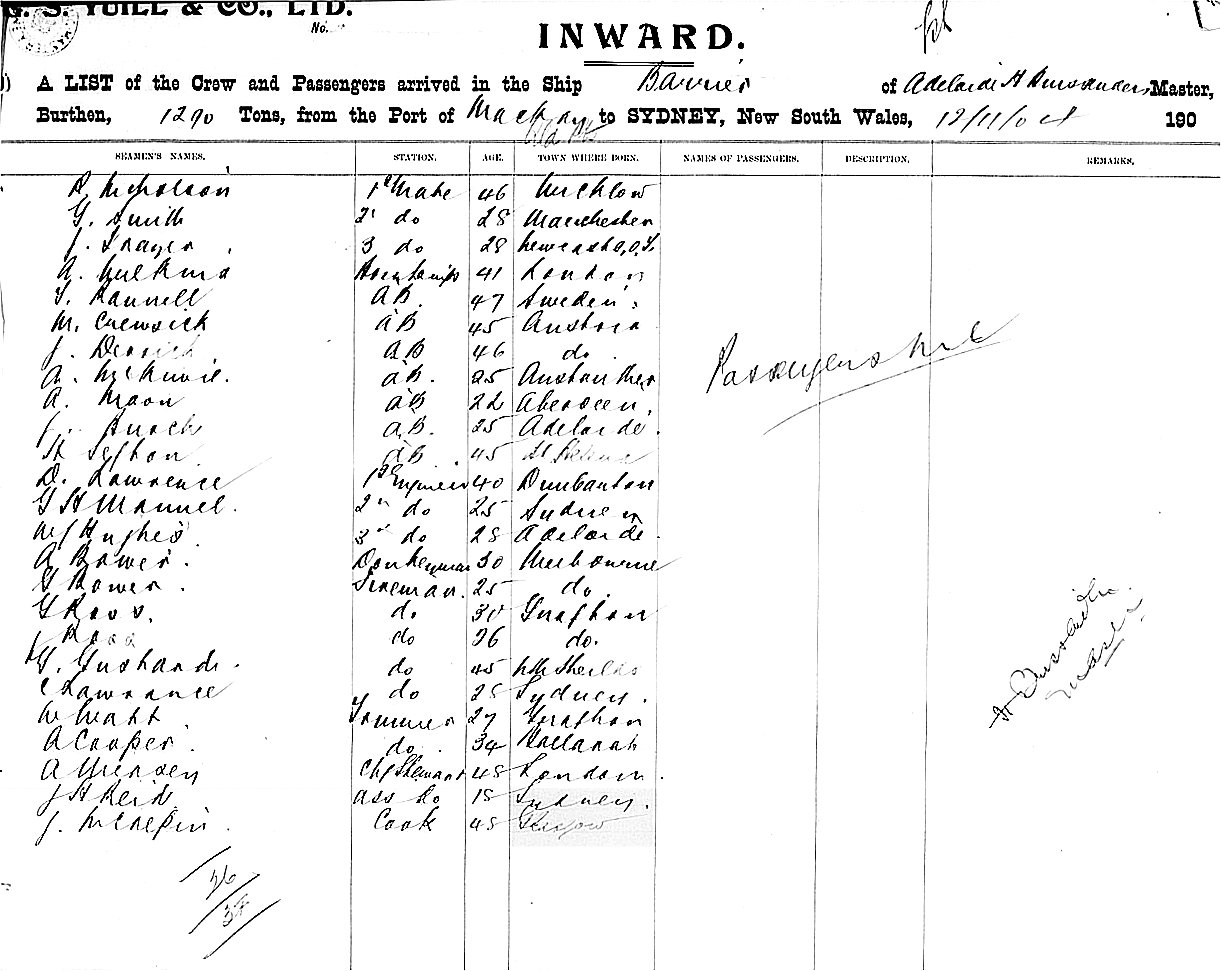 G. S. YUILL & CO., LTD.
No.
INWARD.
A LIST of the Crew and Passengers arrived in the Ship Barrier of Adelaide H Master,
Burthen, 1290 Tons, from the Port of Mackay to SYDNEY, New South Wales, 12/11/ 190
SEAMEN'S NAMES. STATION. AGE. TOWN WHERE BORN. NAMES OF PASSENGERS. DESCRIPTION. REMARKS.
R. Nicholson 1st Mate 46 Wicklow
G. Smith 2d do 28 Manchester
J. 3 do 28
A. Wilkins 41 London
AB. 47 Sweden
M. AB 45 Austria
J. AB 46 do
A. AB. 25 Anstruther
A. Moon AB 22 Aberdeen.
J. AB. 25 Adelaide.
H Sefton AB 45 St Helena
D. Lawrence 1st Engineer 40 Dumbarton
G H Manuel. 2nd do 25 Sydney
W J Hughes 3rd do 28 Adelaide.
A Bower. Donkeyman 30 Melbourne
G Bower. Fireman. 25 do.
G Ross. do 30 Grafton
J Ross do 26 do.
G. do 45 Nth Sheilds
C Lawrance do 28 Sydney.
W Trimmer 27 Grafton
A Cooper. do. 34 Ballarat
A Chf Steward 48 London.
J H Reid ass do 18 Sydney.
J. McAlpin Cook 48 Glasgow
Passengers nil
H
Master
26